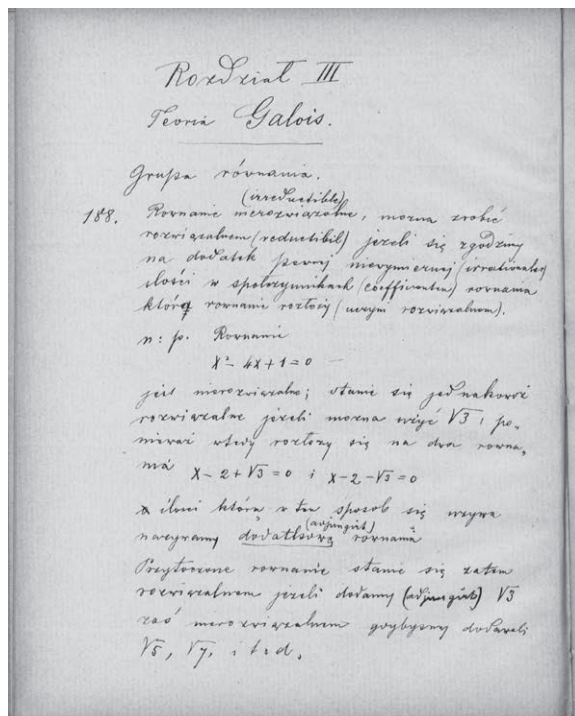 Rozdział III
Teoria Galois.
Grupa równania.
(irreductible)
188. Rownanie nierozwiązalne, mozna zrobić
rozwiązalnem (reductibil) jeżeli się zgodzimy
na dodatek pewnej niewymiernej (irrationale)
ilości w spółczynnikach (coefficienten) rownania
którą rownanie rozłoży (uczyni rozwiązalnem).
n: p. Rownanie
X² - 4X + 1 = 0
jest nierozwiązalne; stanie się jednakowoż
rozwiązalne jeżeli mozna użyć √3, po-
nieważ wtedy rozłoży się na dwa rowna-
nia X - 2 + √3 = 0 i X - 2 - √3 = 0
ilości która w ten sposob się uzywa
(adjungirt)
nazywamy dodatkową rownania
Przytoczone rownanie stanie się zatem
rozwiązalnem jeżeli dodamy (adjungirt) √3
zaś nierozwiązalnem gdybyśmy dodawali
√5, √7, i t: d.